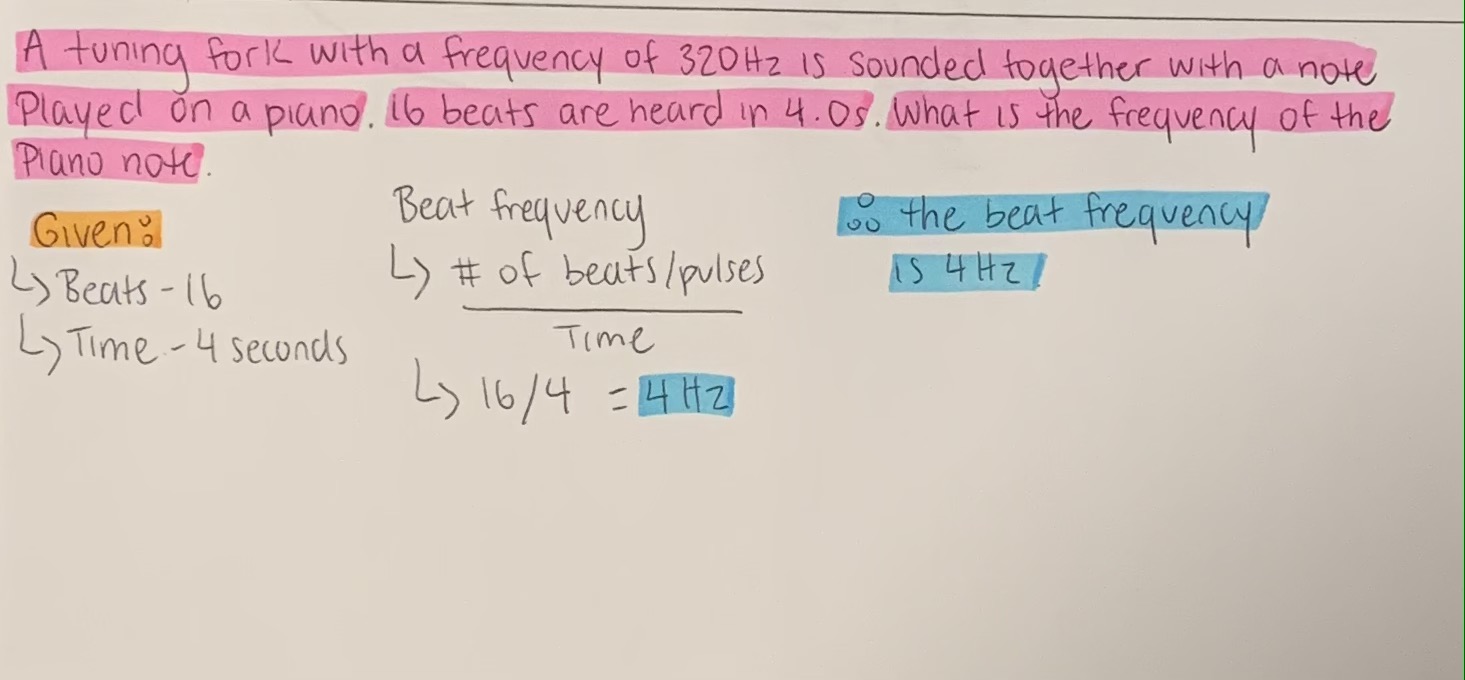 A tuning fork with a frequency of 320Hz is sounded together with a note
Played on a piano. 16 beats are heard in 4.0s. What is the frequency of the
Piano note.
Given:
↳ Beats - 16
↳ Time - 4 seconds
Beat frequency
↳ # of beats/pulses
Time
↳ 16/4 = 4Hz
∴ the beat frequency
is 4Hz